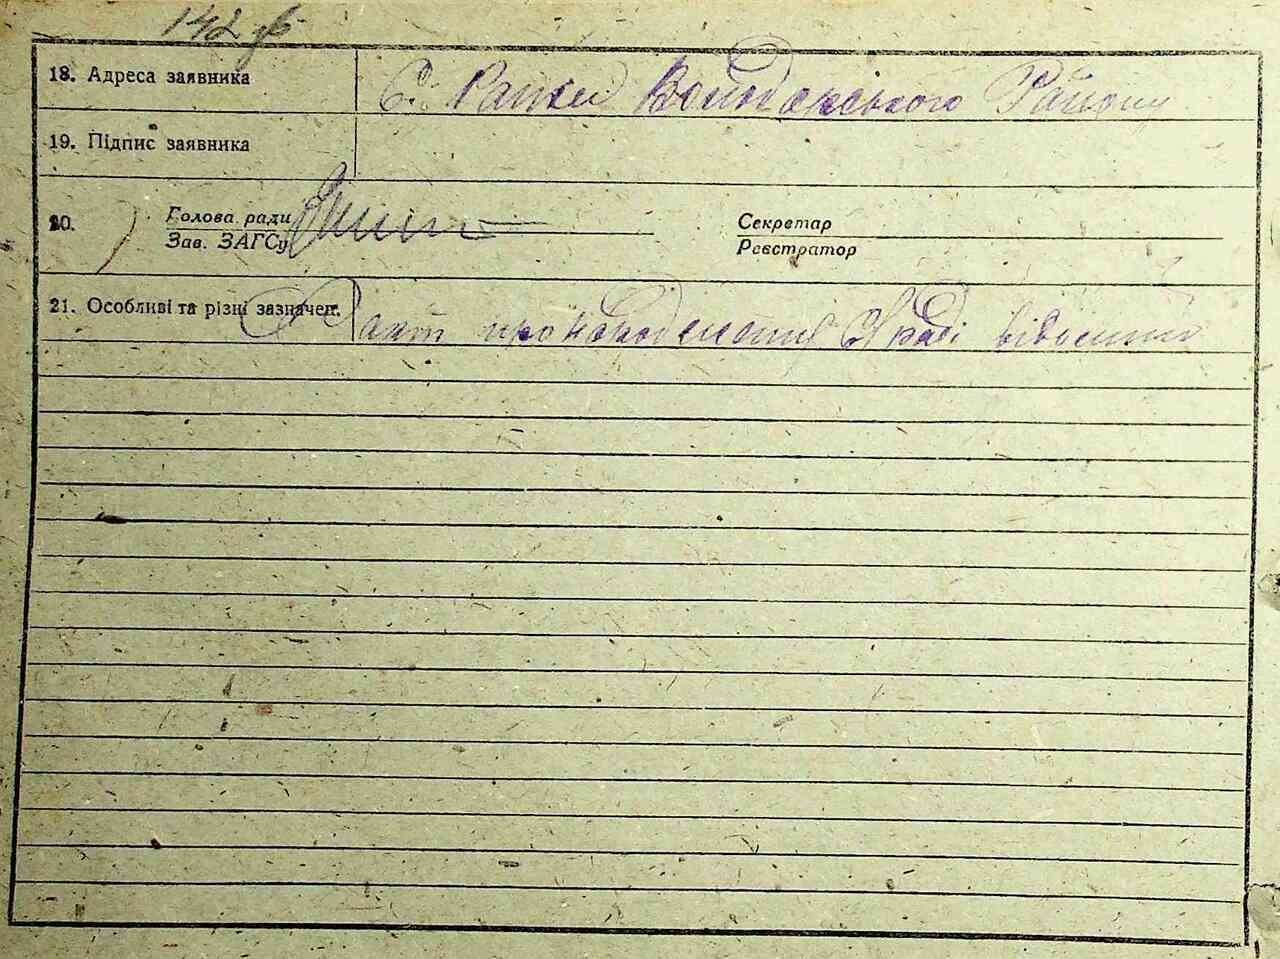 142 зв
18. Адреса заявника С. Райки Володарського Району
19. Підпис заявника
20. Голова ради Секретар
Зав. ЗАГСу Реєстратор
21. Особливі та різні зазначен. Факт про народження Сільраді відомий